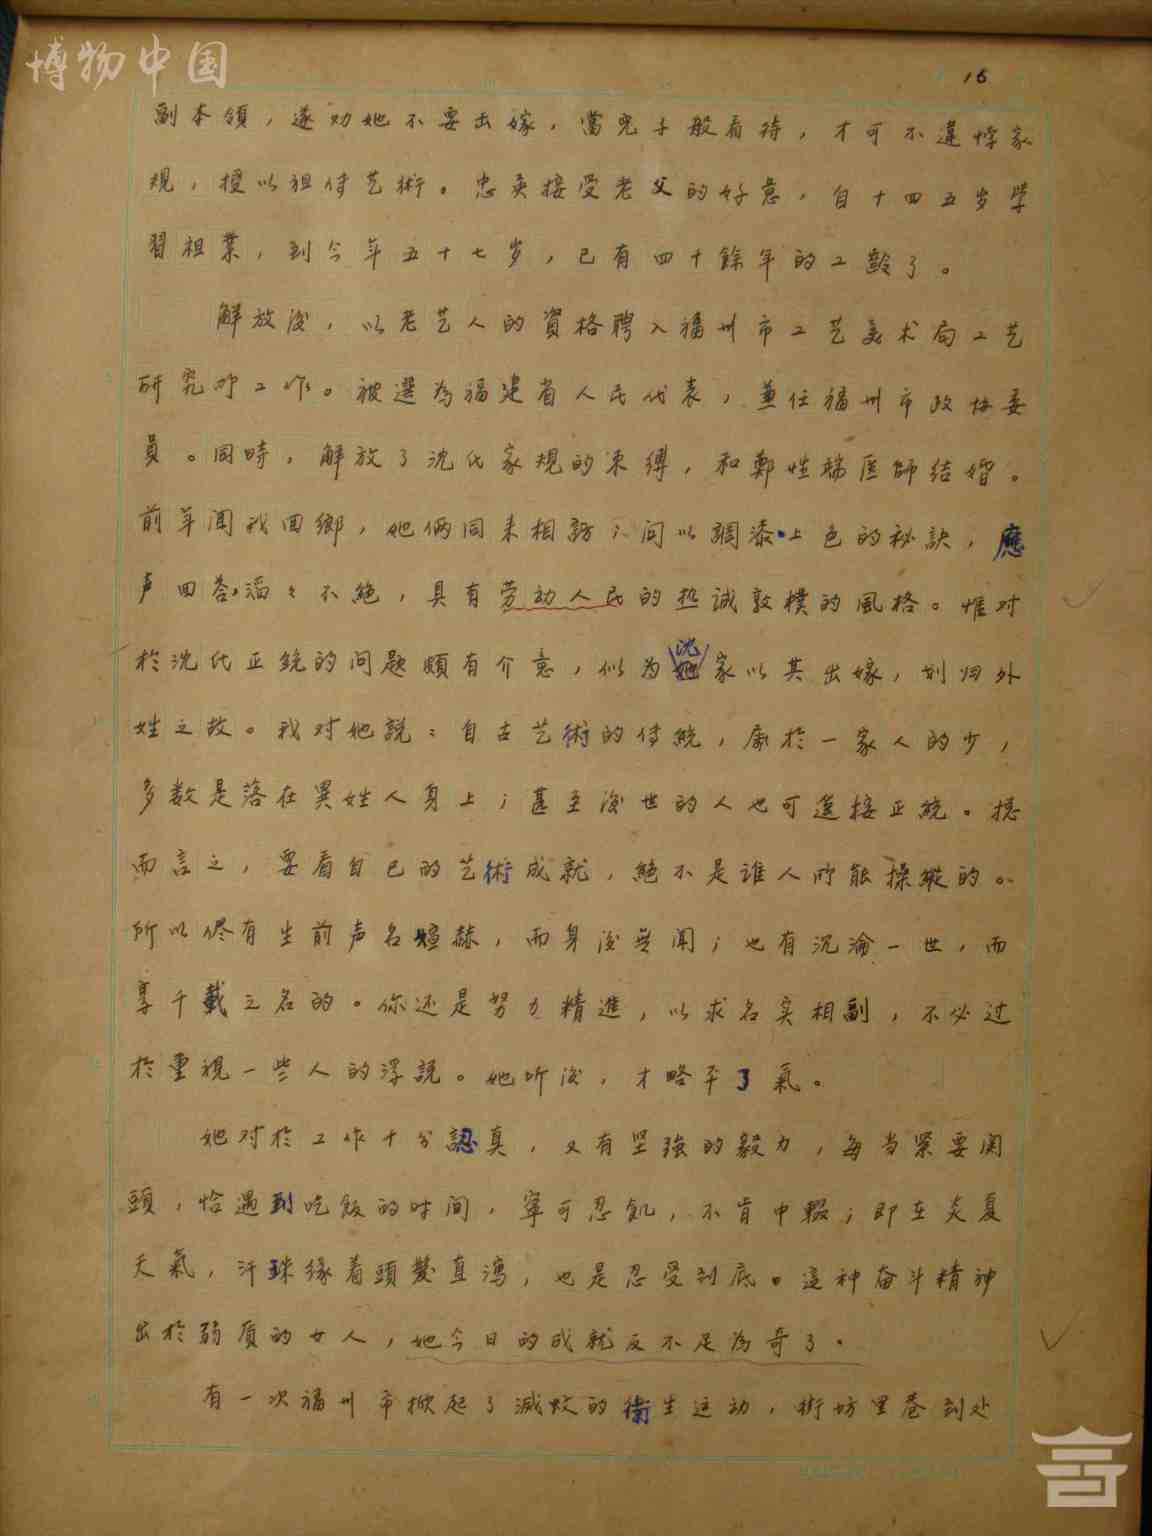 博物中国
16
副本領，遂劝她不要出嫁，當兒子般看待，才可不違悖家
規，授以祖传艺術。忠英接受老父的好意，自十四五岁學
習祖業，到今年五十七岁，已有四十餘年的工齡了。
解放後，以老艺人的資格聘入福州市工艺美术局工艺
研究所工作。被選為福建省人民代表，兼任福州市政协委
員。同時，解放了沈氏家規的束缚，和鄭性稀医師结婚。
前年闻我回鄉，她俩同来相訪；问以調漆上色的秘訣，應
声回答，滔々不絕，具有劳动人民的热诚敦樸的風格。惟对
於沈氏正統的问題頗有介意，似为沈家以其出嫁，划归外
姓之故。我对她説：自古艺術的传統，属於一家人的少，
多数是落在異姓人身上；甚至後世的人也可遥接正統。總
而言之，要看自己的艺術成就，絕不是谁人所能操縱的。
所以侭有生前声名煊赫，而身後無闻；也有沉淪一世，而
享千載之名的。你还是努力精進，以求名实相副，不必过
於重視一些人的浮說。她听後，才略平了氣。
她对於工作十分認真，又有坚強的毅力，每当緊要関
頭，恰遇到吃飯的时间，寧可忍飢，不肯中輟；即在炎夏
天氣，汗珠缘着頭髮直瀉，也是忍受到底。這种奋斗精神
出於弱质的女人，她今日的成就反不足為奇了。
有一次福州市掀起了滅蚊的衛生运动，街坊里巷到处